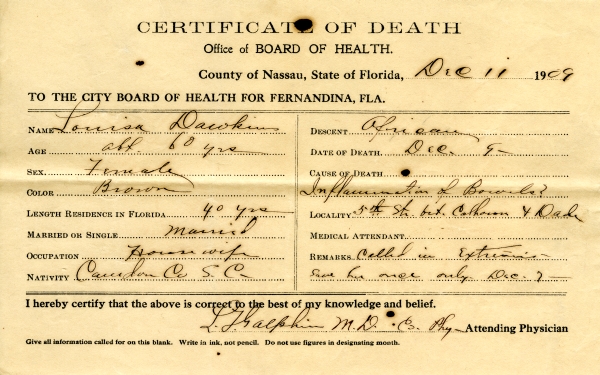 CERTIFICATE OF DEATH
Office of BOARD OF HEALTH.
County of Nassau, State of Florida, Dec 11 1909
TO THE CITY BOARD OF HEALTH FOR FERNANDINA, FLA.
NAME Louisa Dawkins
AGE abt 60 yrs
SEX Female
COLOR Brown
LENGTH RESIDENCE IN FLORIDA 40 yrs
MARRIED OR SINGLE Married
OCCUPATION Housewife
NATIVITY Camden Co S. C.
DESCENT African
DATE OF DEATH Dec. 9
CAUSE OF DEATH
Inflammation of Bowels?
LOCALITY 5th St. bet. Calhoun & Dade
MEDICAL ATTENDANT
REMARKS Called in Extremis
Saw her once only Dec. 7
I hereby certify that the above is correct to the best of my knowledge and belief.
Galphin M. D. Co. Phy Attending Physician
Give all information called for on this blank. Write in ink, not pencil. Do not use figures in designating month.